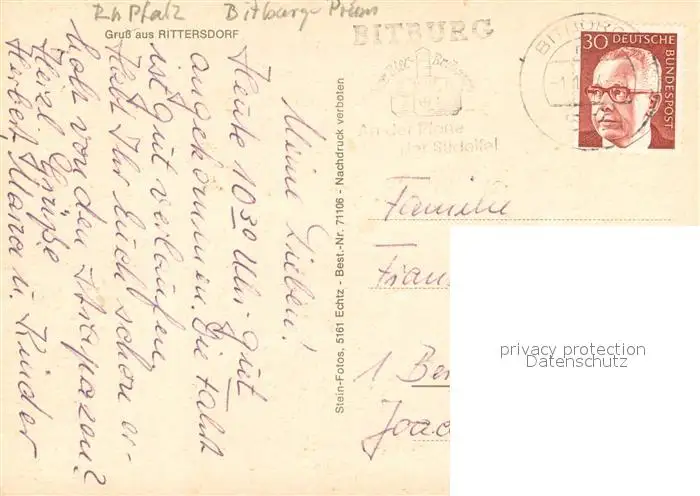 Rh Pfalz Bitburg-Prüm
Gruß aus RITTERSDORF
Meine Lieben!
Heute 10 30 Uhr gut
angekommen. Die Fahrt
ist gut verlaufen
Habt Ihr Euch schon er-
holt von den Strapazen?
Herzl. Grüße
Herbert, Maria u. Kinder
Stein-Fotos, 5161 Echtz - Best.-Nr. 71106 - Nachdruck verboten
BITBURG
An der Pforte
der Südeifel
BITBURG
30 DEUTSCHE
BUNDESPOST
Familie
Fran
1 Ber
Joac
privacy protection
Datenschutz